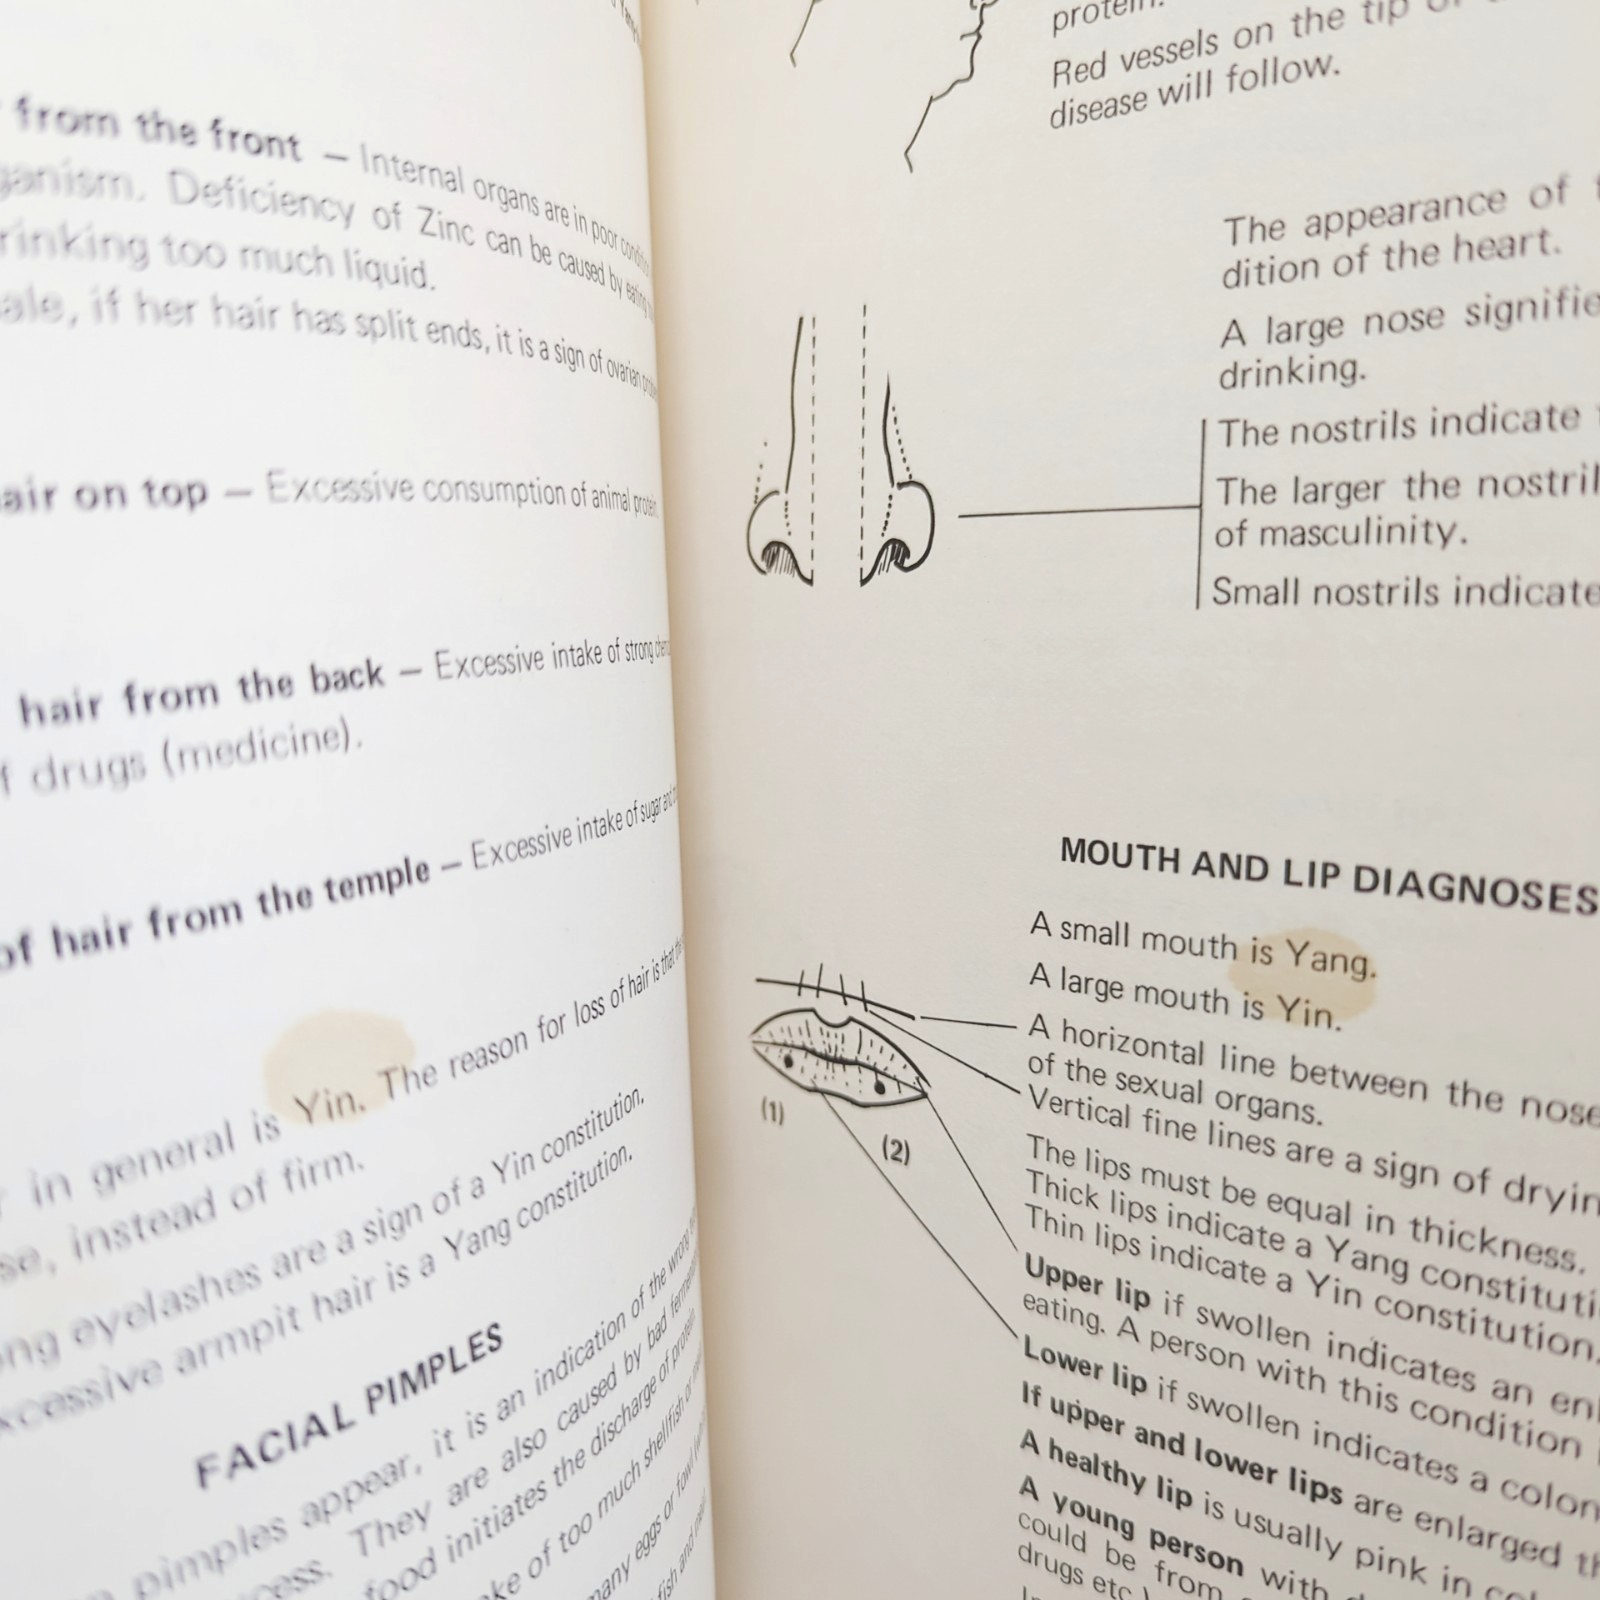 from the front – Internal organs are in poor
Deficiency of Zinc can be caused by eating
too much liquid.
if her hair has split ends, it is a sign of ovarian
on top – Excessive consumption of animal protein
hair from the back – Excessive intake of strong
drugs (medicine).
of hair from the temple – Excessive intake of sugar and
in general is Yin. The reason for loss of hair is that the
instead of firm.
eyelashes are a sign of a Yin constitution.
armpit hair is a Yang constitution.
FACIAL PIMPLES
pimples appear, it is an indication of the wrong
They are also caused by bad
food initiates the discharge of protein.
of too much shellfish or
many eggs or fowl
fish and
protein.
Red vessels on the tip
disease will follow.
The appearance of
dition of the heart.
A large nose
drinking.
The nostrils indicate
The larger the
of masculinity.
Small nostrils indicate
MOUTH AND LIP DIAGNOSES
A small mouth is Yang.
A large mouth is Yin.
A horizontal line between the nose
of the sexual organs.
Vertical fine lines are a sign of
The lips must be equal in thickness.
Thick lips indicate a Yang
Thin lips indicate a Yin constitution.
(1)
(2)
Upper lip if swollen indicates an
eating. A person with this condition
Lower lip if swollen indicates a
If upper and lower lips are enlarged
A healthy lip is usually pink in
A young person with
could be from
drugs etc.)